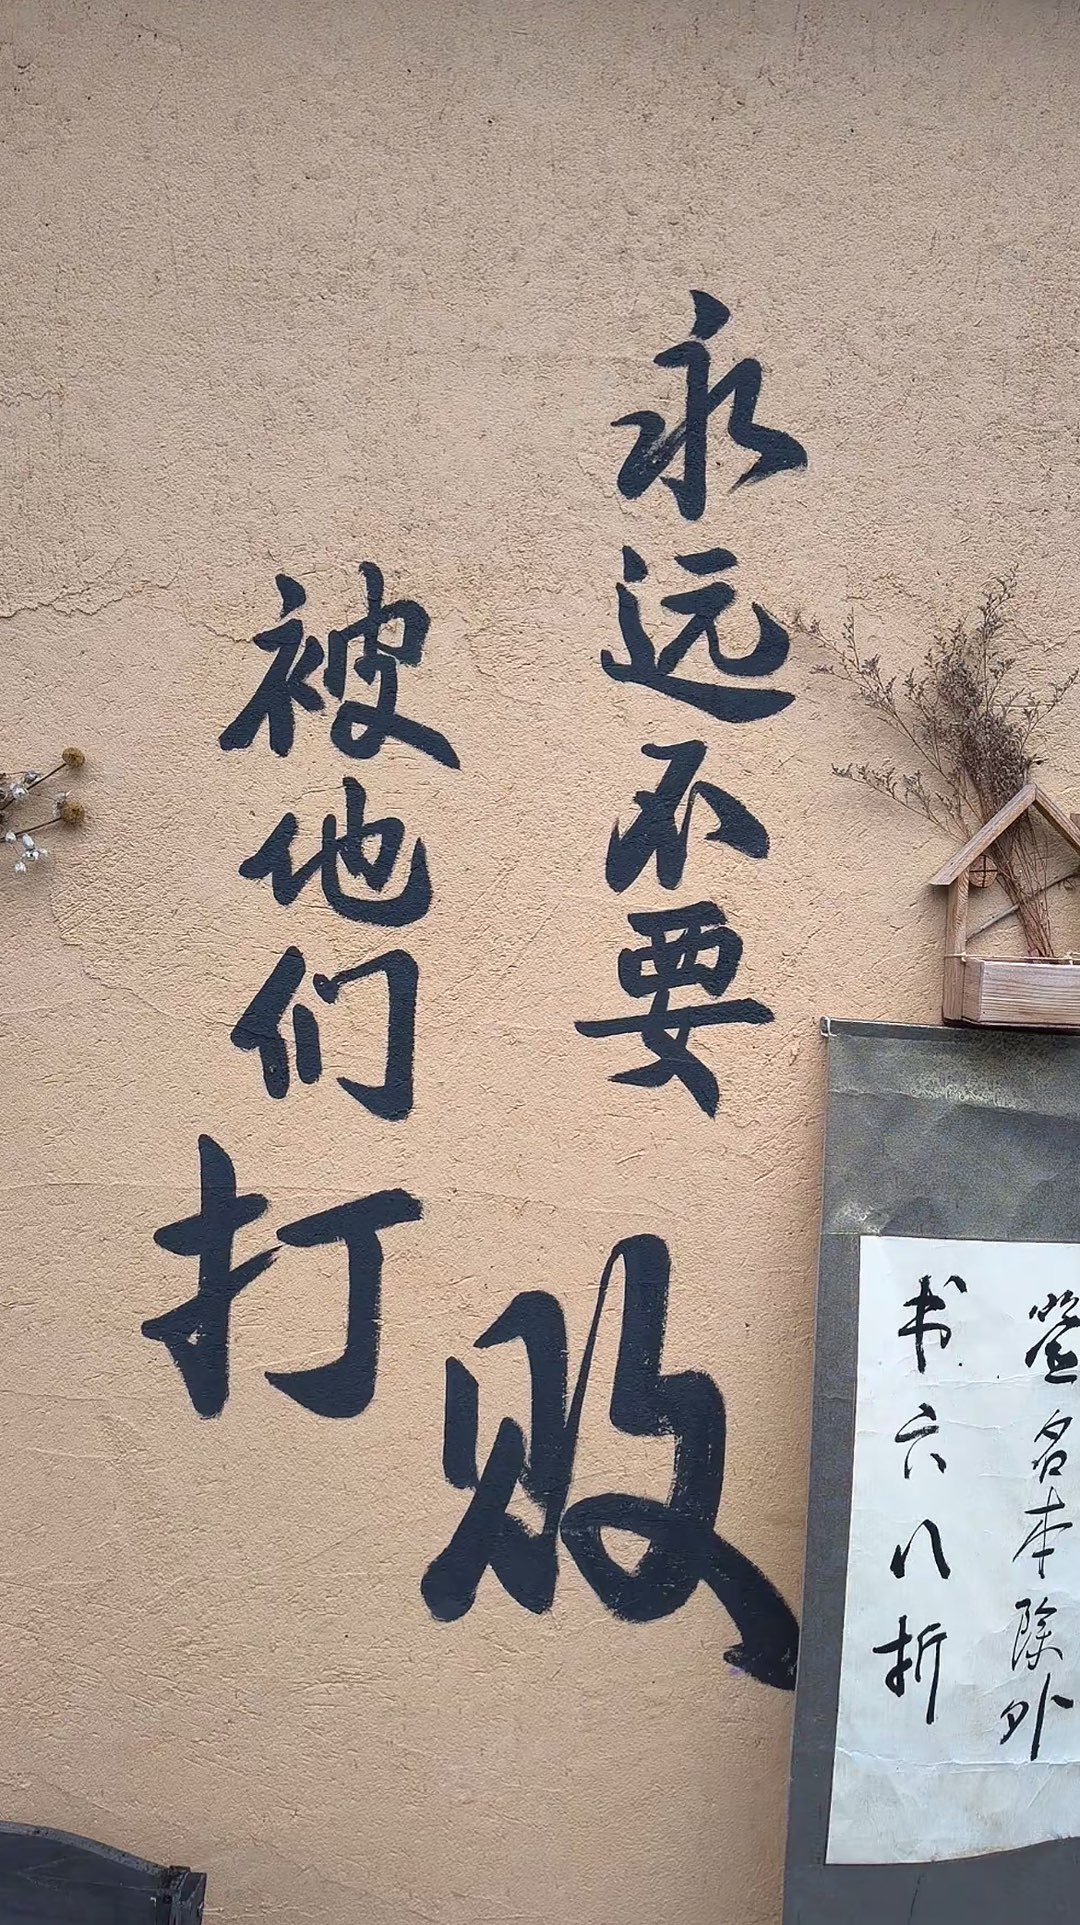 永远不要
被他们打
败
签名本除外
书六八折